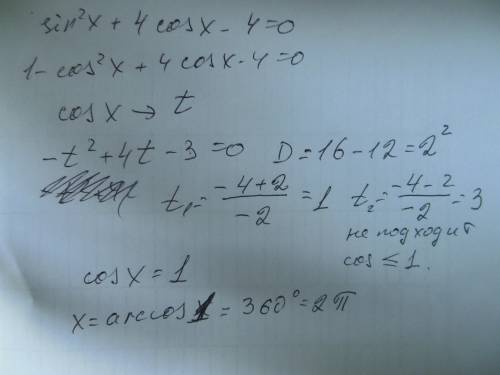 sin²x + 4 cosx - 4 = 0
1 - cos²x + 4 cosx - 4 = 0
cosx → t
-t² + 4t - 3 = 0   D = 16 - 12 = 2²
t₁ = (-4+2)/(-2) = 1   t₂ = (-4-2)/(-2) = 3
не подходит
cos ≤ 1.
cosx = 1
x = arccos1 = 360° = 2π